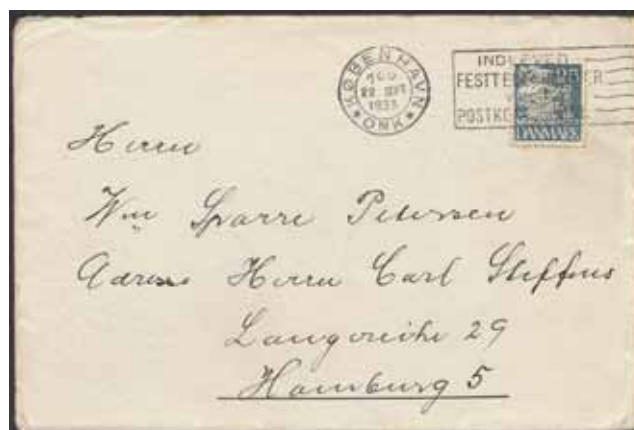 KØBENHAVN
1933
* OMK *
INDLEVER
FESTTE
POSTKO
25
DANMARK
Herrn
Wm Sparre Petersen
Adress Herrn Carl Steffens
Langereihe 29
Hamburg 5